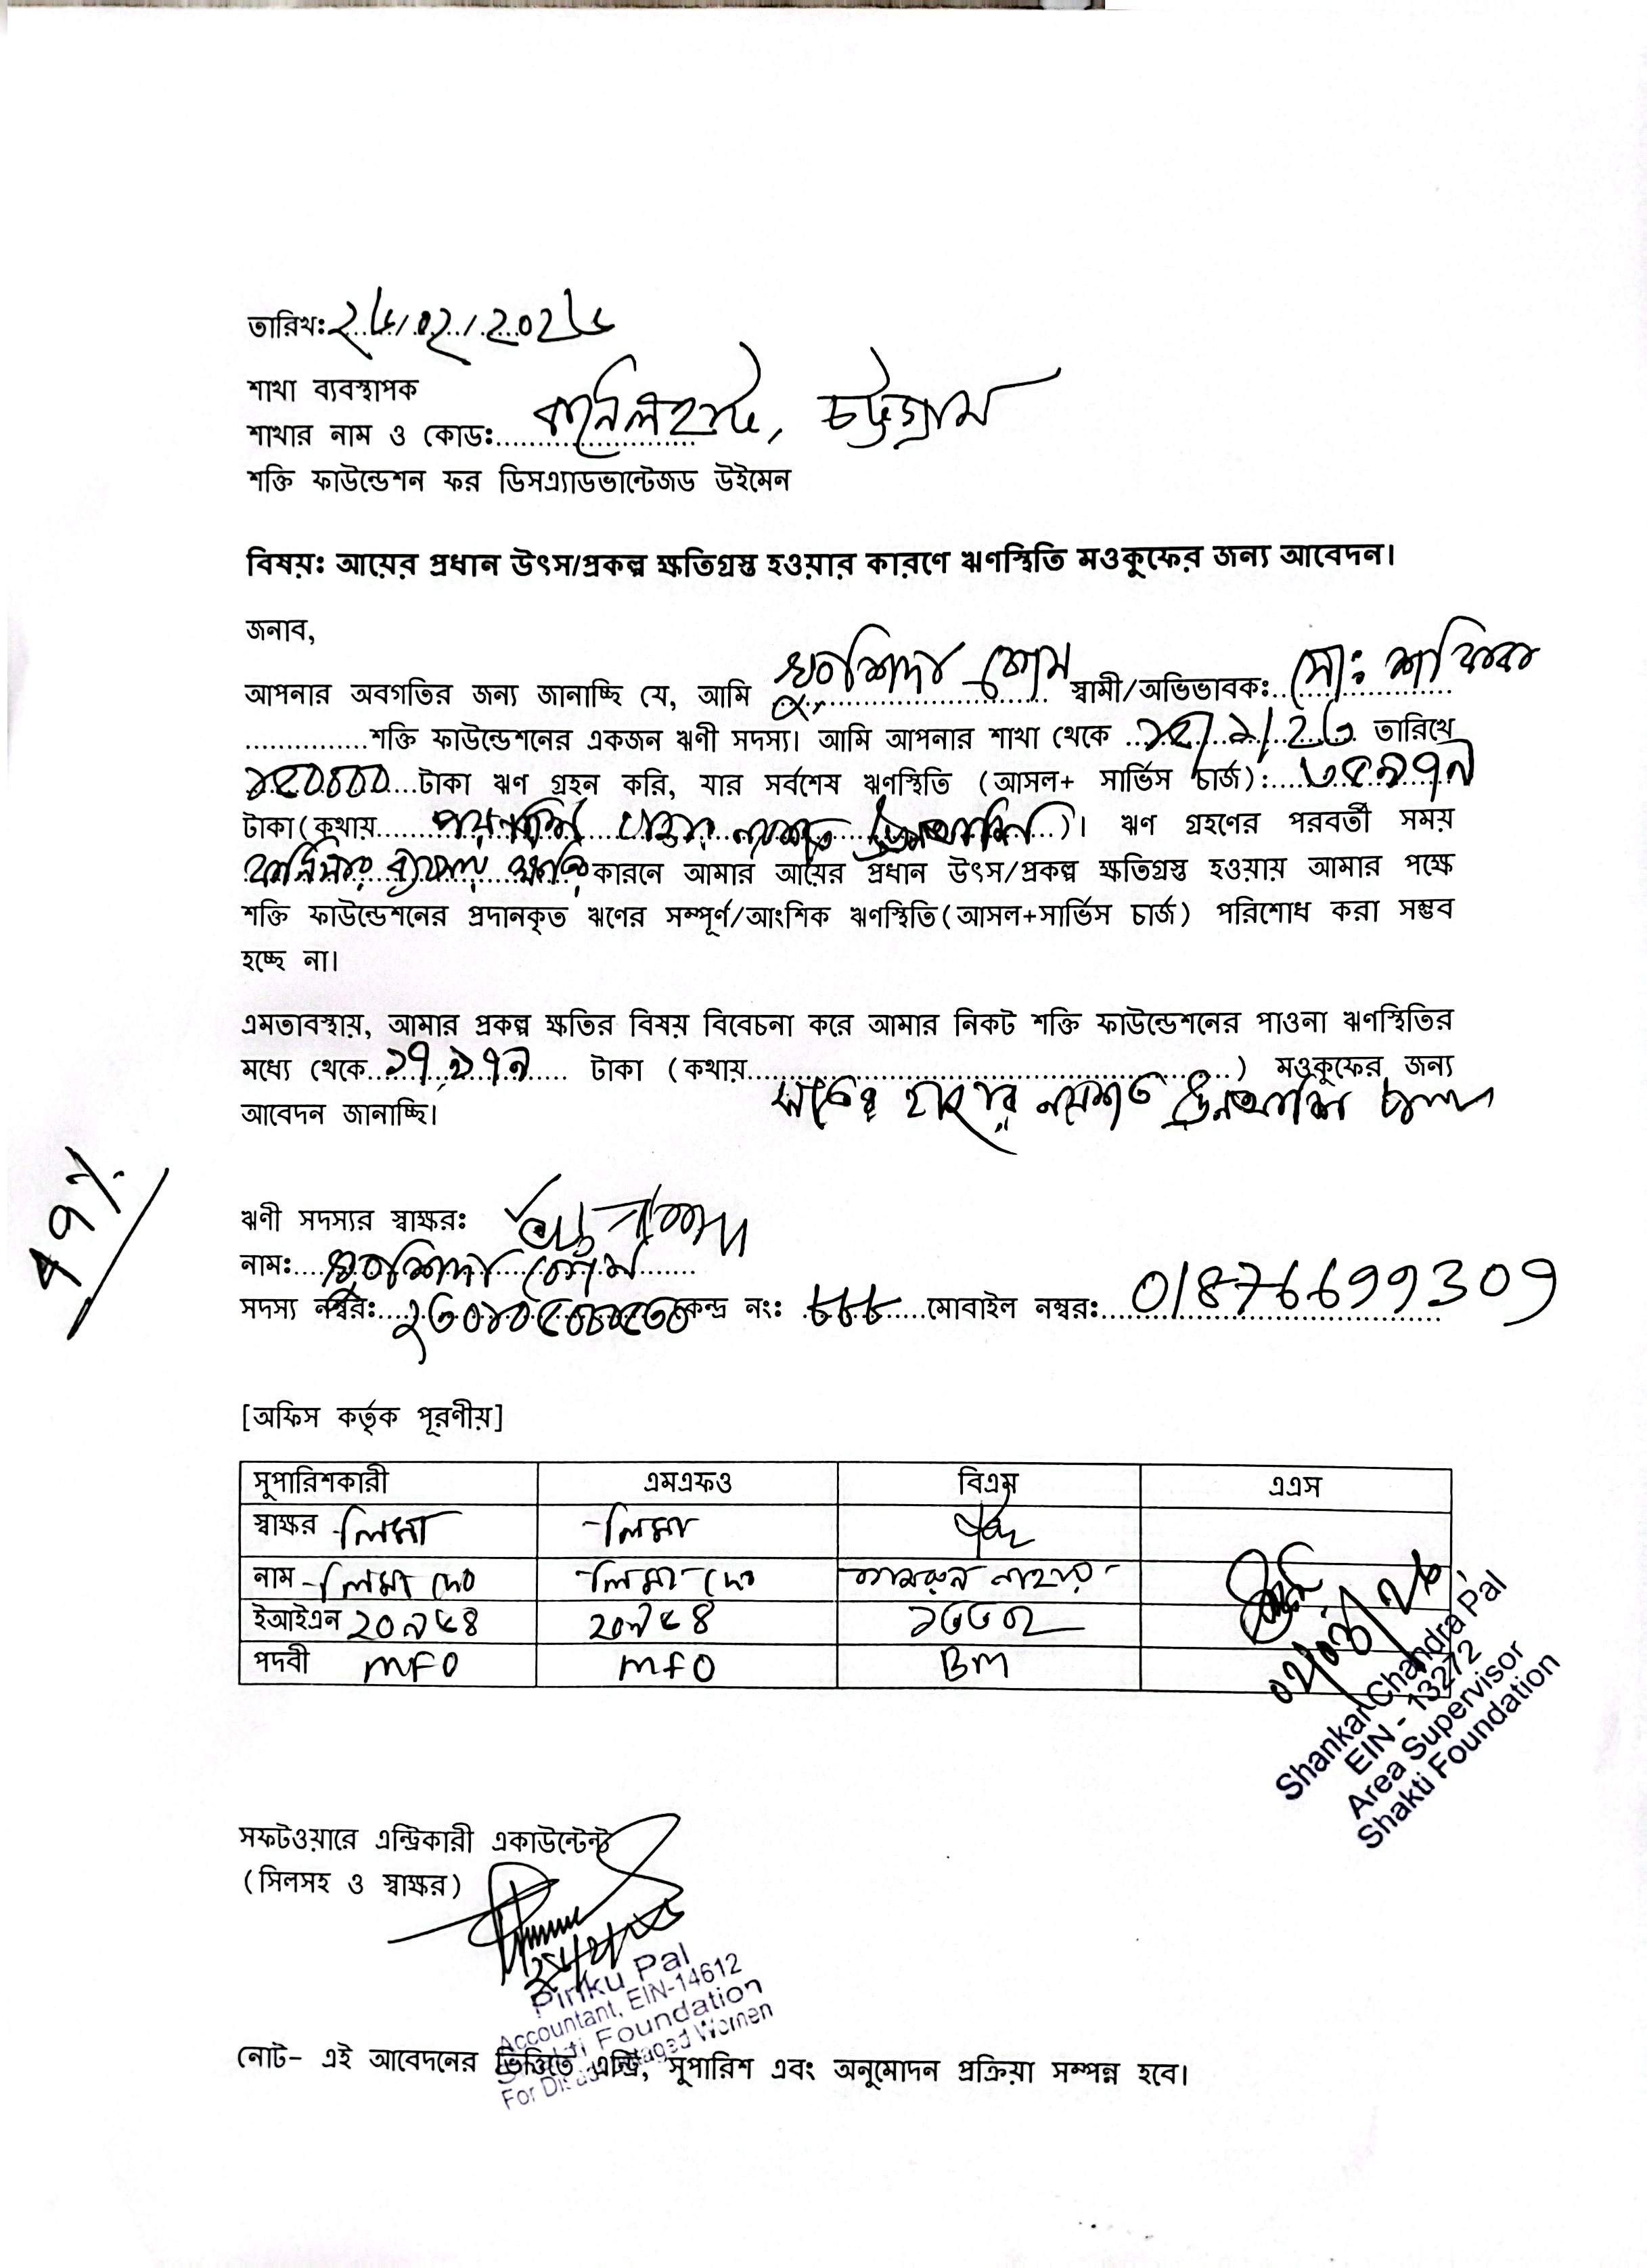 তারিখঃ ২৬/০২/২০২৬
শাখা ব্যবস্থাপক
শাখার নাম ও কোডঃ কর্নেলহাট, চট্টগ্রাম
শক্তি ফাউন্ডেশন ফর ডিসএ্যাডভান্টেজড উইমেন
বিষয়ঃ আয়ের প্রধান উৎস/প্রকল্প ক্ষতিগ্রস্ত হওয়ার কারণে ঋণস্থিতি মওকুফের জন্য আবেদন।
জনাব,
আপনার অবগতির জন্য জানাচ্ছি যে, আমি খুরশিদা বেগম স্বামী/অভিভাবকঃ মোঃ
শক্তি ফাউন্ডেশনের একজন ঋণী সদস্য। আমি আপনার শাখা থেকে তারিখে
টাকা ঋণ গ্রহন করি, যার সর্বশেষ ঋণস্থিতি (আসল+ সার্ভিস চার্জ): ৩৫৯৭৯
টাকা(কথায় হাজার নয়শত উনআশি)। ঋণ গ্রহণের পরবর্তী সময়
ব্যবসায় কারনে আমার আয়ের প্রধান উৎস/প্রকল্প ক্ষতিগ্রস্ত হওয়ায় আমার পক্ষে
শক্তি ফাউন্ডেশনের প্রদানকৃত ঋণের সম্পূর্ণ/আংশিক ঋণস্থিতি(আসল+সার্ভিস চার্জ) পরিশোধ করা সম্ভব
হচ্ছে না।
এমতাবস্থায়, আমার প্রকল্প ক্ষতির বিষয় বিবেচনা করে আমার নিকট শক্তি ফাউন্ডেশনের পাওনা ঋণস্থিতির
মধ্যে থেকে ১৭,৯৭৯ টাকা (কথায় ) মওকুফের জন্য
সতের হাজার নয়শত উনআশি টাকা
আবেদন জানাচ্ছি।
ঋণী সদস্যর স্বাক্ষরঃ
নামঃ খুরশিদা বেগম
সদস্য নম্বরঃ কেন্দ্র নং: ৮৮৮ মোবাইল নম্বরঃ 01876699309
[অফিস কর্তৃক পূরণীয়]
সুপারিশকারী এমএফও বিএম এএস
স্বাক্ষর লিমা লিমা
নাম লিমা দে লিমা দে কামরুন নাহার
ইআইএন ২০৯৫৪ ২০৯৫৪ ১৩৩০২
পদবী MFO MFO BM
Shankar Chandra Pal
EIN - 13272
Area Supervisor
Shakti Foundation
সফটওয়ারে এন্ট্রিকারী একাউন্টেন্ট
(সিলসহ ও স্বাক্ষর)
Pinku Pal
Accountant, EIN-14612
Foundation
নোট- এই আবেদনের ভিত্তিতে এন্ট্রি, সুপারিশ এবং অনুমোদন প্রক্রিয়া সম্পন্ন হবে।